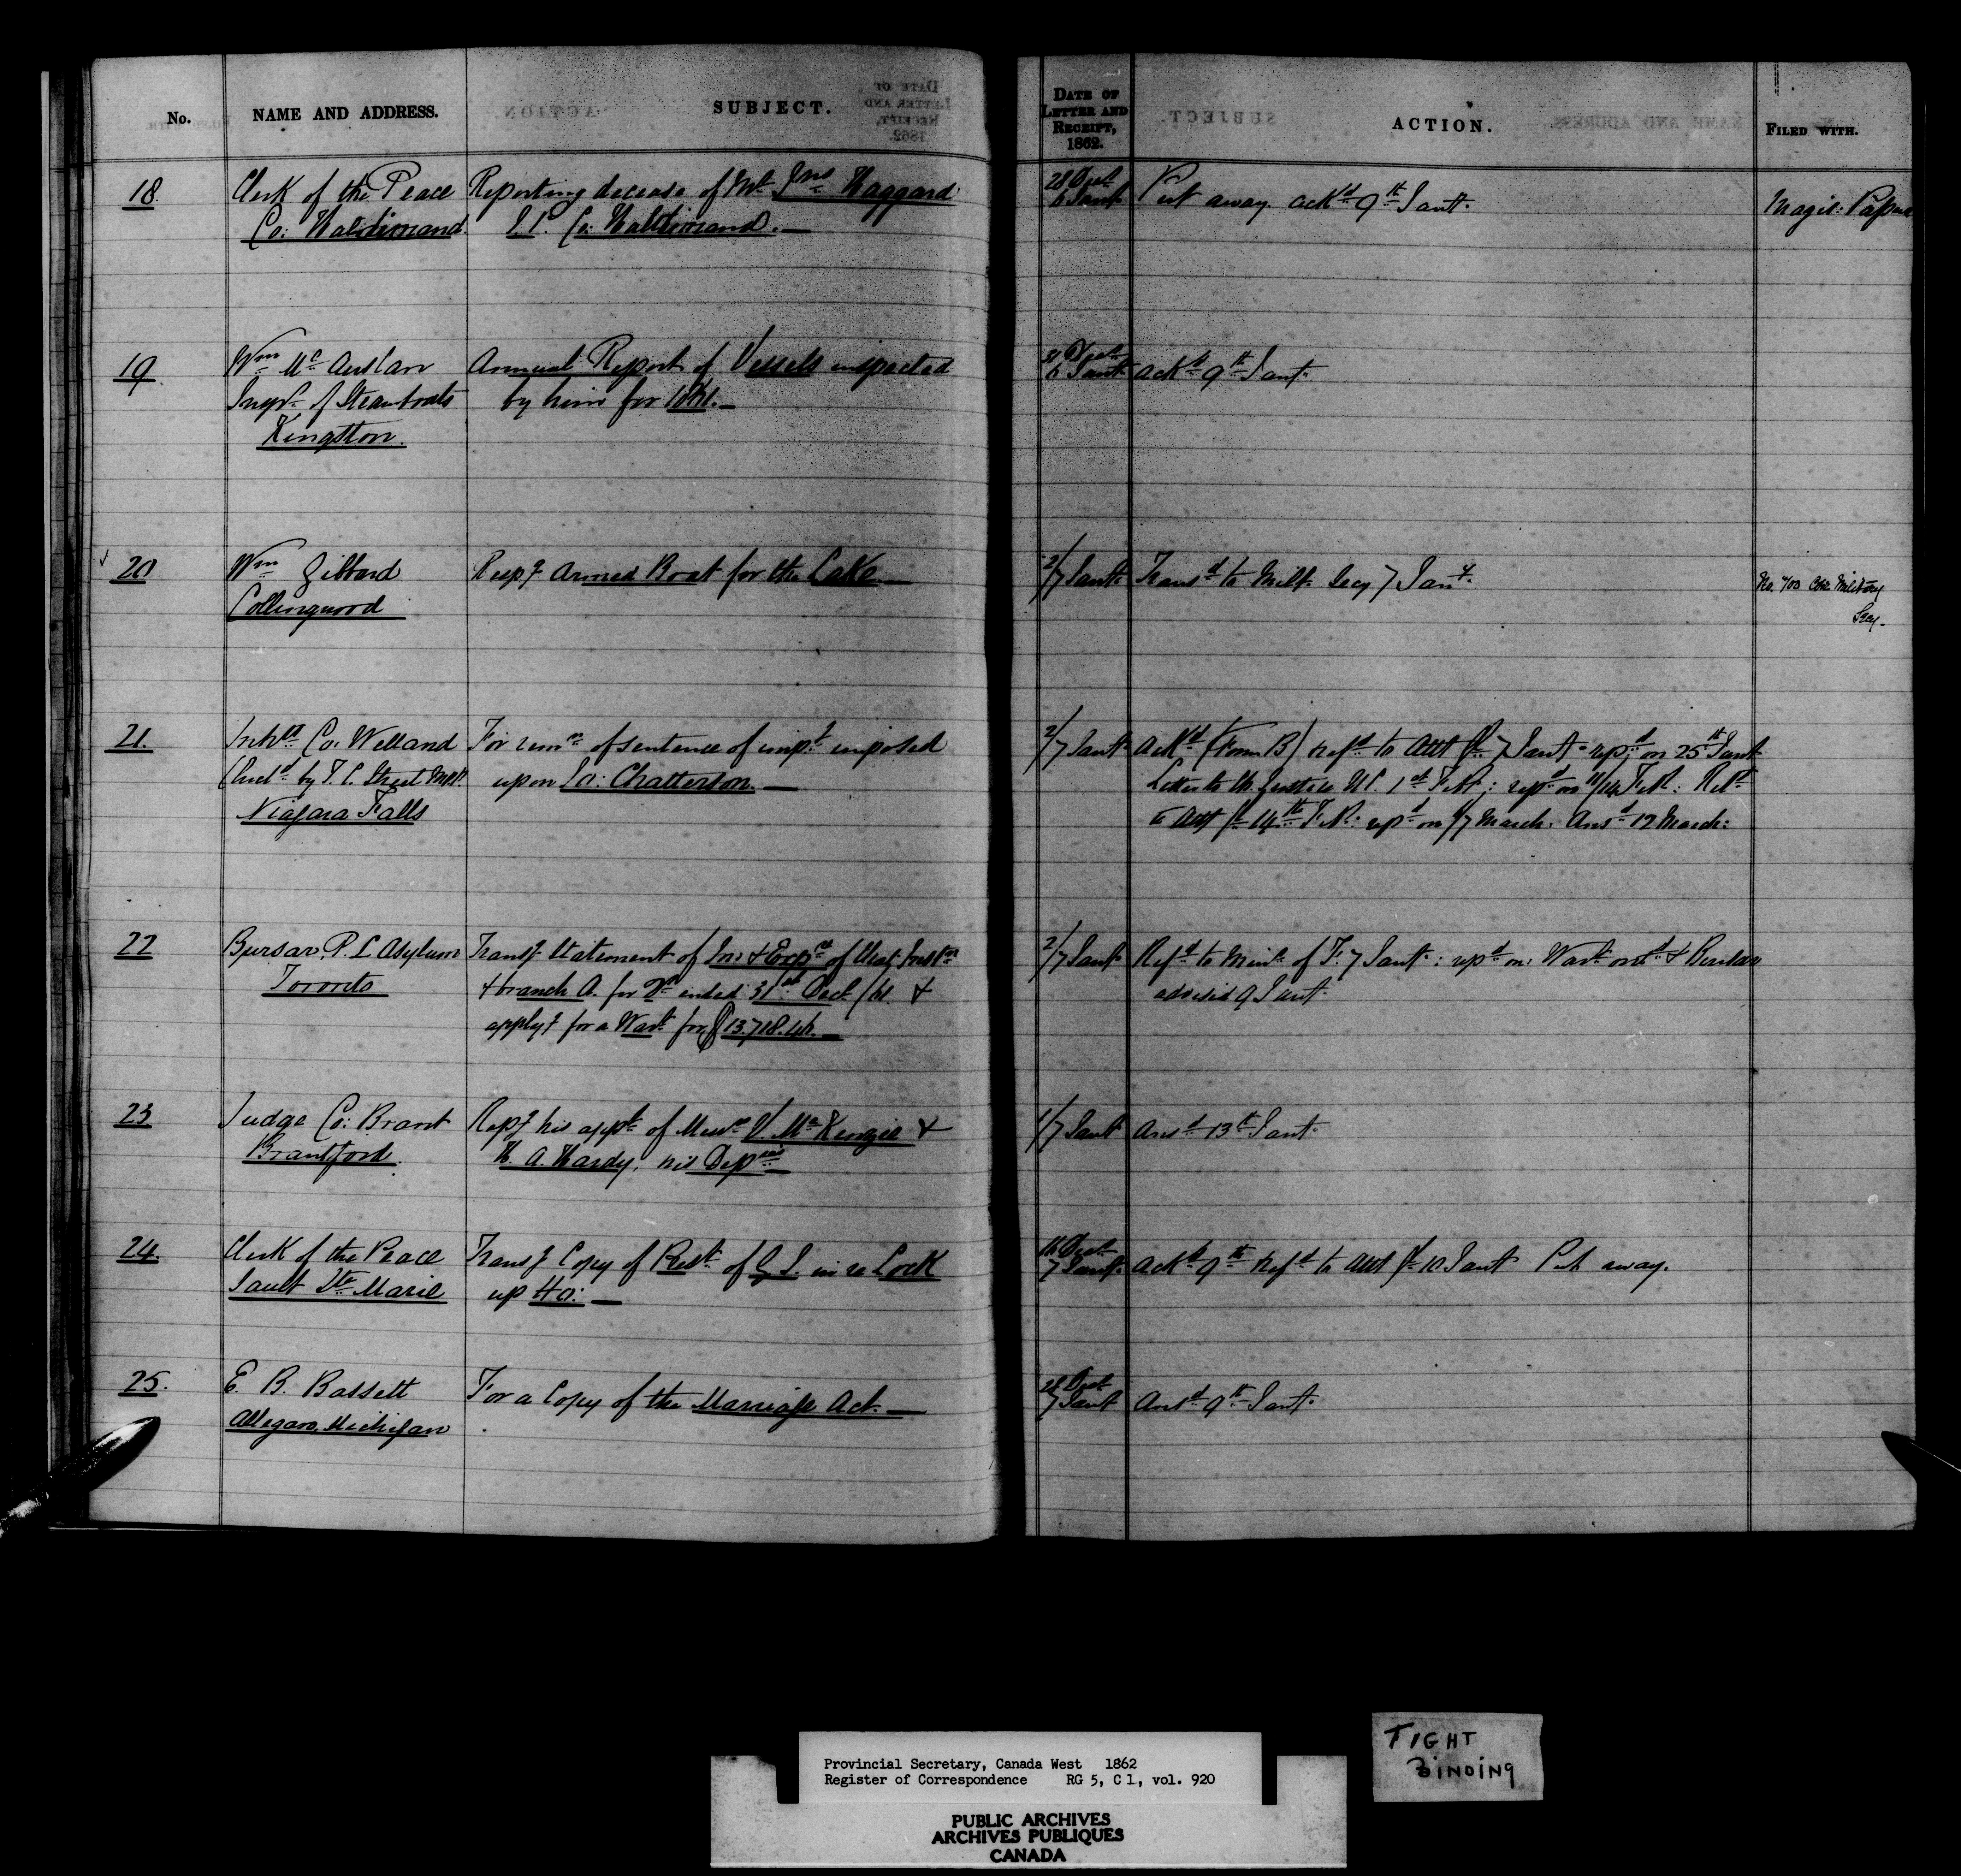 No. NAME AND ADDRESS. SUBJECT. DATE OF LETTER AND RECEIPT, 1862. ACTION. FILED WITH.
18. Clerk of the Peace Reporting decease of Mr. Jno Haggard 28 Dect Put away. ackd 9th Jany. Magis: Papers
Co: Haldimand. J.P. Co: Haldimand. — 6 Jany
19. Wm Mc Auslan Annual Report of Vessels inspected 31 Dect ackd 9th Jany.
Inspr of Steamboats by him for 1861. — 6 Jany
Kingston.
20 Wm Gibbard Respg Armed Boat for the Lake — 2/7 Jany Transd to Milty Secy 7 Jany. No. 703 Military
Collingwood Secy.
21. Inhts Co: Welland For remn of sentence of impt imposed 2/7 Jany ackd (Form B) refd to Att Gl 7 Jany repd on 25th Jany
(Encld by T. C. Street M.P.P. upon Jas: Chatterson. — Letter to Ch. Justice U.C. 1st Feb: repd on 11/14 Feb: Refd
Niagara Falls to Att Gl 14th Feb: repd on 7 March: Ansd 12 March:
22 Bursar P. L Asylum Transg Statement of Inc & Expre of that Instn 2/7 Jany Refd to Minr of F. 7 Jany: repd on: Wart & Bursar
Toronto & branch A. for Qr ended 31st Dect /61. & advised 9 Jany.
applyg for a Wart for $13.718.46. —
23 Judge Co: Brant Repg his appt of Messrs V. McKenzie & 1/7 Jany Ansd 13th Jany.
Brantford. H. A. Hardy, his Depies
24. Clerk of the Peace Transg Copy of Rest of Q. S. in re Lock 16 Dect ackd 9th Refd to Att Gl 10 Jany Put away.
Sault Ste Marie up Ho: — 7 Jany
25. E. B. Bassett For a Copy of the Marriage Act. — 28 Dect Ansd 9th Jany.
Allegan, Michigan 7 Jany
TIGHT
BINDING
Provincial Secretary, Canada West 1862
Register of Correspondence RG 5, C 1, vol. 920
PUBLIC ARCHIVES
ARCHIVES PUBLIQUES
CANADA